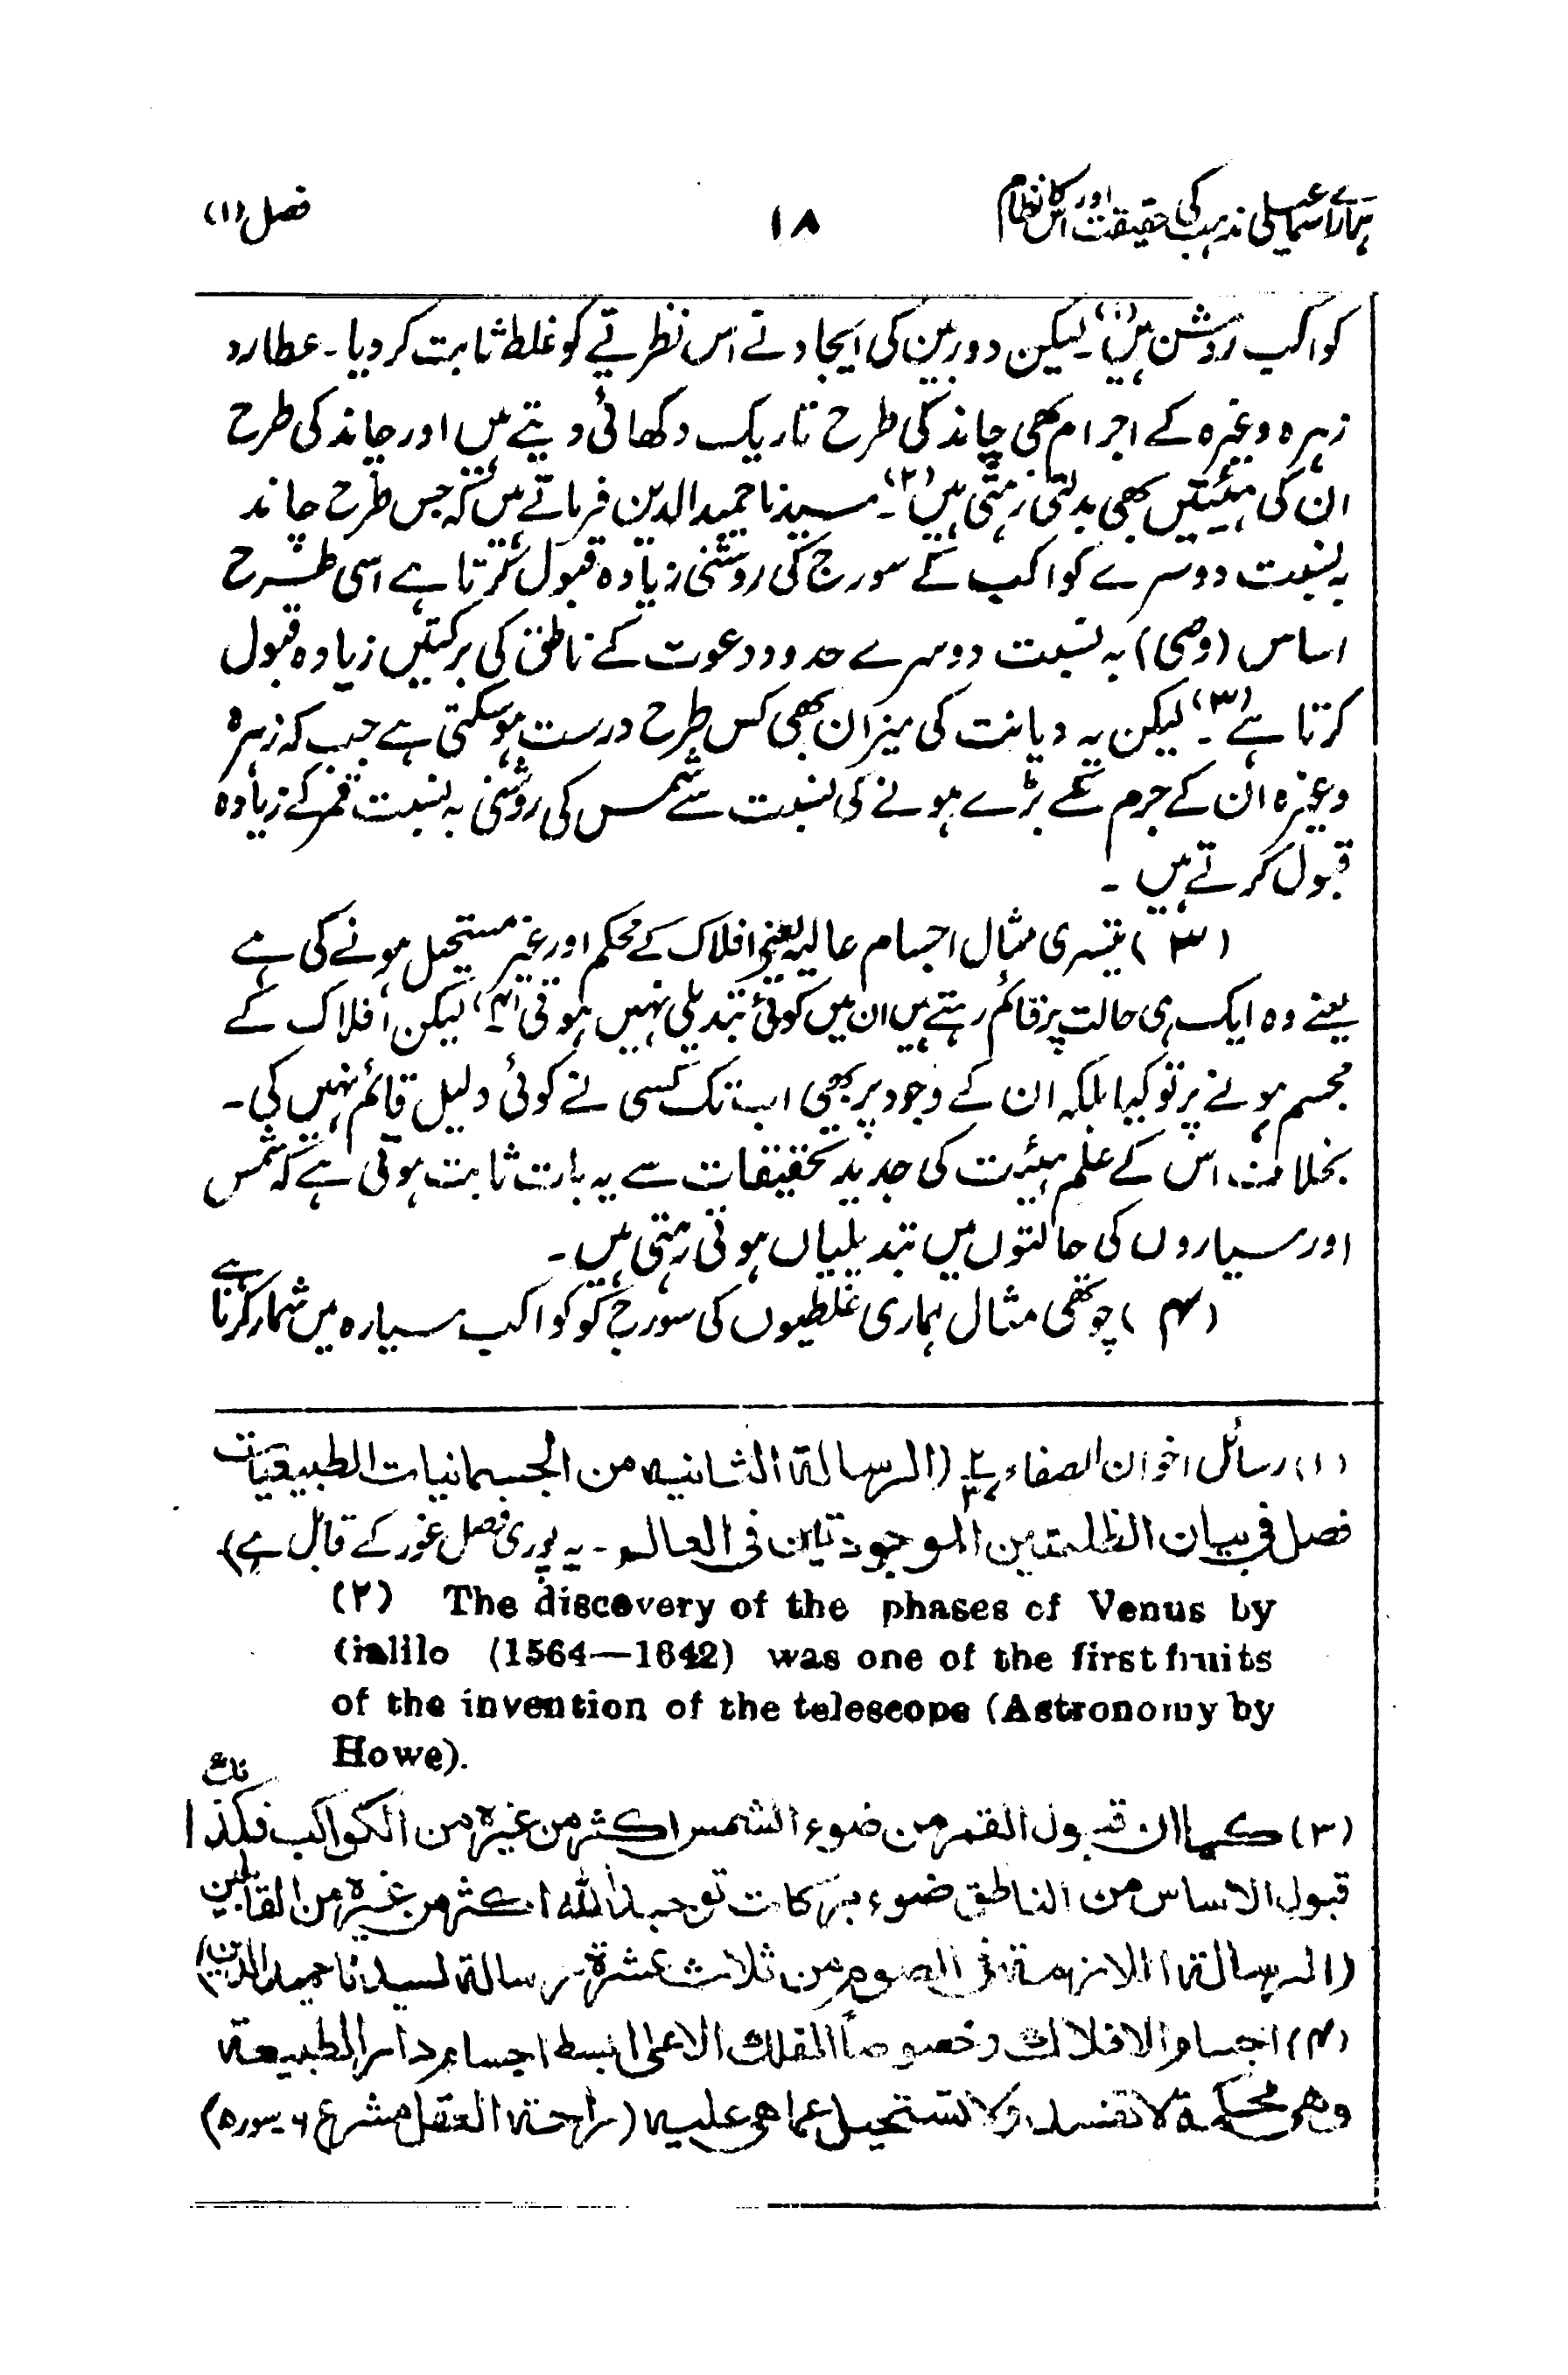 ہمارے اسماعیلی مذہب کی حقیقت اور اس کا نظام ۱۸ فصل (۱)
کواکب روشن ہیں(۱)۔ لیکن دوربین کی ایجاد نے اس نظریے کو غلط ثابت کر دیا۔ عطارد
زہرہ وغیرہ کے اجرام بھی چاند کی طرح تاریک دکھائی دیتے ہیں اور چاند کی طرح
ان کی ہیئتیں بھی بدلتی رہتی ہیں(۲)۔ سیدنا حمید الدین فرماتے ہیں کہ جس طرح چاند
بہ نسبت دوسرے کواکب کے سورج کی روشنی زیادہ قبول کرتا ہے اسی طرح
اساس (وصی) بہ نسبت دوسرے حدود دعوت کے ناطق کی برکتیں زیادہ قبول
کرتا ہے(۳)۔ لیکن یہ دیانت کی میزان بھی کس طرح درست ہو سکتی ہے جب کہ زہرہ
وغیرہ ان کے جرم کے بڑے ہونے کی نسبت سے شمس کی روشنی بہ نسبت قمر کے زیادہ
قبول کرتے ہیں ۔
(۳) تیسری مثال اجسام عالیہ یعنی افلاک کے محکم اور غیر مستحیل ہونے کی ہے
یعنے وہ ایک ہی حالت پر قائم رہتے ہیں ان میں کوئی تبدیلی نہیں ہوتی(۴) لیکن افلاک کے
مجسم ہونے پر تو کیا بلکہ ان کے وجود پر بھی اب تک کسی نے کوئی دلیل قائم نہیں کی۔
بخلاف اس کے علم ہیئت کی جدید تحقیقات سے یہ بات ثابت ہوتی ہے کہ شمس
اور سیاروں کی حالتوں میں تبدیلیاں ہوتی رہتی ہیں۔
(۴) چوتھی مثال ہماری غلطیوں کی سورج کو کواکب سیارہ میں شمار کرنا ہے
(۱) رسائل اخوان الصفاء (الرسالة الثانيه من الجسمانيات الطبيعيات
فصل فی بیان الظلمتین الموجودتین فی العالم ۔ یہ پوری فصل غور کے قابل ہے)
(۲) The discovery of the phases of Venus by
Galilo (1564—1642) was one of the first fruits
of the invention of the telescope (Astronomy by
Howe).
(۳) كما ان قبول القمر من ضوء الشمس اكثر من غيره من الكواكب فكذا كان
قبول الاساس من الناطق ضوء بركات توحيد الله اكثر من غيره من القابلين
(الرسالة اللازمة فی الصوم من ثلاث عشرة رسالة لسيدنا حميد الدين)
(۴) اجسام الافلاك وخصوصاً الفلك الاعلى ابسط اجسام دار الطبيعة
وهى محكمة لا تفسد ولا تستحيل عما هى عليه (راحة العقل مشرع ۶ سوره ۵)